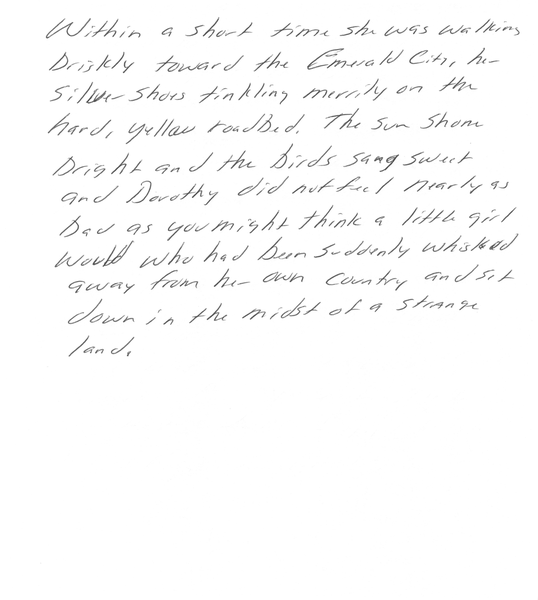 Within a short time she was walking
briskly toward the Emerald City, her
Silver Shoes tinkling merrily on the
hard, yellow roadbed. The sun shone
bright and the birds sang sweet
and Dorothy did not feel nearly as
bad as you might think a little girl
would who had been suddenly whisked
away from her own country and set
down in the midst of a strange
land.